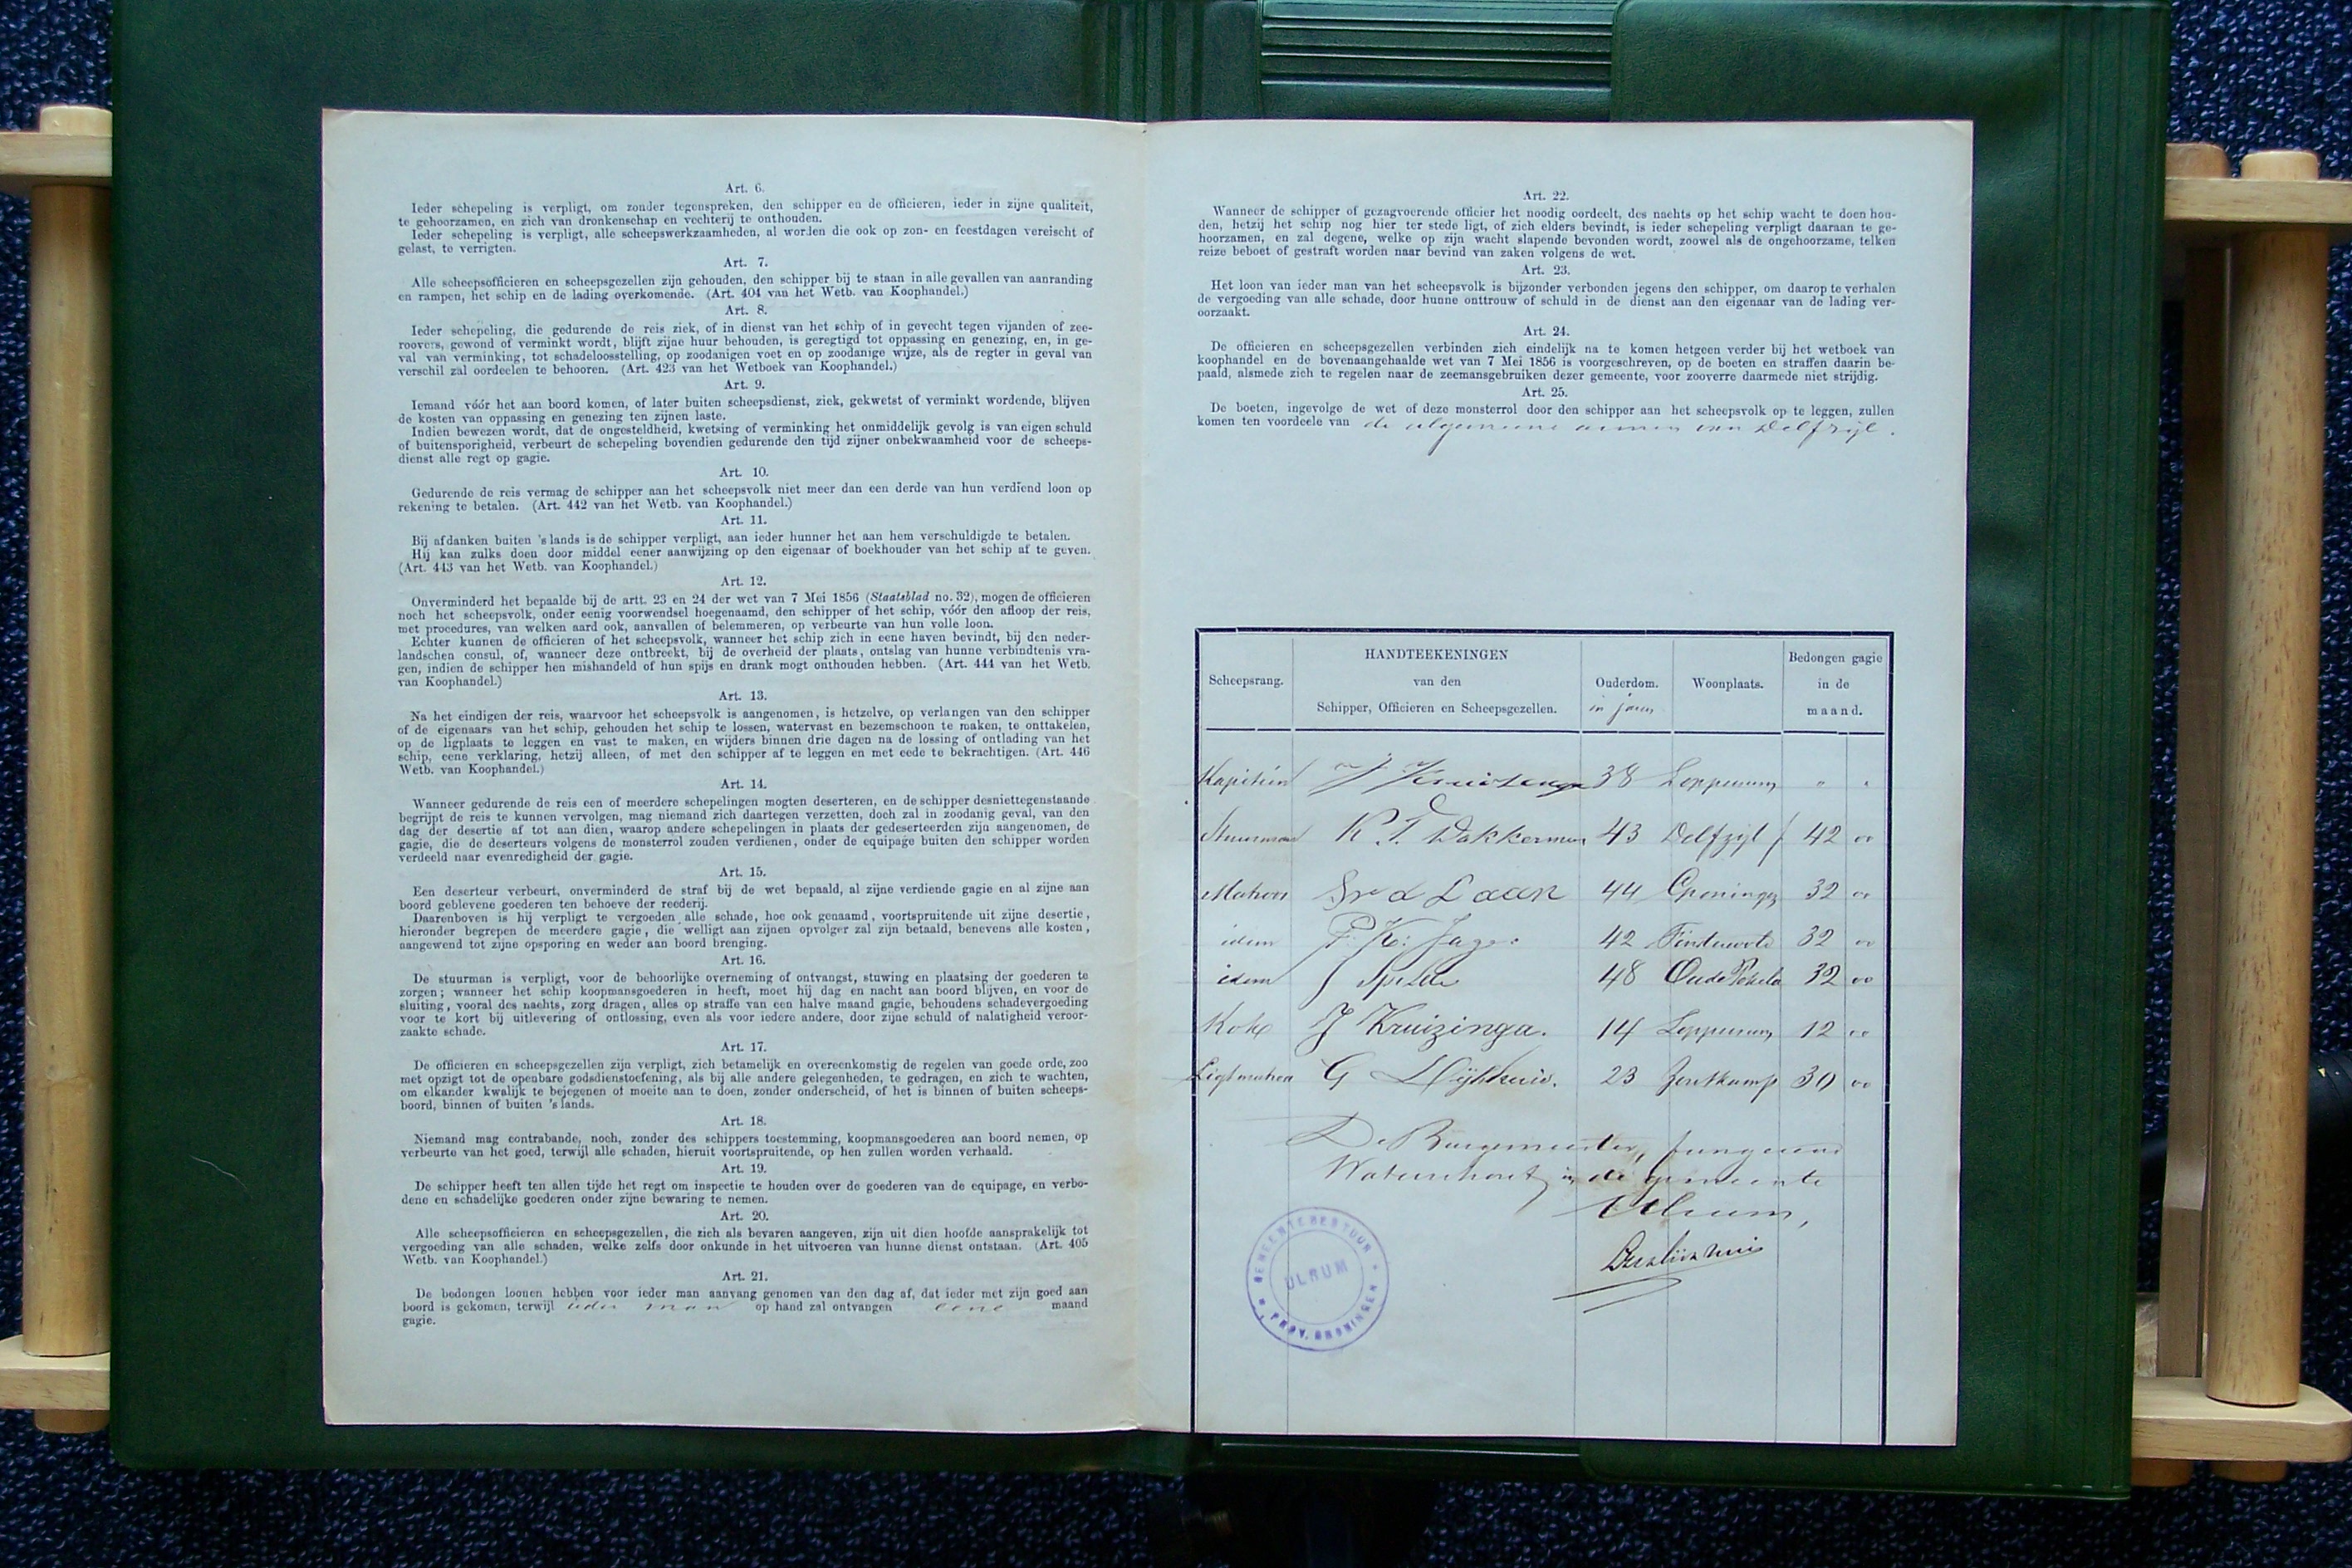 Art. 6.
Ieder schepeling is verpligt, om zonder tegenspreken, den schipper en de officieren, ieder in zijne qualiteit,
te gehoorzamen, en zich van dronkenschap en vechterij te onthouden.
Ieder schepeling is verpligt, alle scheepswerkzaamheden, al worden die ook op zon- en feestdagen vereischt of
gelast, te verrigten.
Art. 7.
Alle scheepsofficieren en scheepsgezellen zijn gehouden, den schipper bij te staan in alle gevallen van aanranding
en rampen, het schip en de lading overkomende. (Art. 404 van het Wetb. van Koophandel.)
Art. 8.
Ieder schepeling, die gedurende de reis ziek, of in dienst van het schip of in gevecht tegen vijanden of zee-
roovers, gewond of verminkt wordt, blijft zijne huur behouden, is geregtigd tot oppassing en genezing, en, in ge-
val van verminking, tot schadeloosstelling, op zoodanigen voet en op zoodanige wijze, als de regter in geval van
verschil zal oordeelen te behooren. (Art. 423 van het Wetboek van Koophandel.)
Art. 9.
Iemand vóór het aan boord komen, of later buiten scheepsdienst, ziek, gekwetst of verminkt wordende, blijven
de kosten van oppassing en genezing ten zijnen laste.
Indien bewezen wordt, dat de ongesteldheid, kwetsing of verminking het onmiddelijk gevolg is van eigen schuld
of buitensporigheid, verbeurt de schepeling bovendien gedurende den tijd zijner onbekwaamheid voor de scheeps-
dienst alle regt op gagie.
Art. 10.
Gedurende de reis vermag de schipper aan het scheepsvolk niet meer dan een derde van hun verdiend loon op
rekening te betalen. (Art. 442 van het Wetb. van Koophandel.)
Art. 11.
Bij afdanken buiten 's lands is de schipper verpligt, aan ieder hunner het aan hem verschuldigde te betalen.
Hij kan zulks doen door middel eener aanwijzing op den eigenaar of boekhouder van het schip af te geven.
(Art. 443 van het Wetb. van Koophandel.)
Art. 12.
Onverminderd het bepaalde bij de artt. 23 en 24 der wet van 7 Mei 1856 (Staatsblad no. 32), mogen de officieren
noch het scheepsvolk, onder eenig voorwendsel hoegenaamd, den schipper of het schip, vóór den afloop der reis,
met procedures, van welken aard ook, aanvallen of belemmeren, op verbeurte van hun volle loon.
Echter kunnen de officieren of het scheepsvolk, wanneer het schip zich in eene haven bevindt, bij den neder-
landschen consul, of, wanneer deze ontbreekt, bij de overheid der plaats, ontslag van hunne verbindtenis vra-
gen, indien de schipper hen mishandeld of hun spijs en drank mogt onthouden hebben. (Art. 444 van het Wetb.
van Koophandel.)
Art. 13.
Na het eindigen der reis, waarvoor het scheepsvolk is aangenomen, is hetzelve, op verlangen van den schipper
of de eigenaars van het schip, gehouden het schip te lossen, watervast en bezemschoon te maken, te onttakelen,
op de ligplaats te leggen en vast te maken, en wijders binnen drie dagen na de lossing of ontlading van het
schip, eene verklaring, hetzij alleen, of met den schipper af te leggen en met eede te bekrachtigen. (Art. 446
Wetb. van Koophandel.)
Art. 14.
Wanneer gedurende de reis een of meerdere schepelingen mogten deserteren, en de schipper desniettegenstaande
begrijpt de reis te kunnen vervolgen, mag niemand zich daartegen verzetten, doch zal in zoodanig geval, van den
dag der desertie af tot aan dien, waarop andere schepelingen in plaats der gedeserteerden zijn aangenomen, de
gagie, die de deserteurs volgens de monsterrol zouden verdienen, onder de equipage buiten den schipper worden
verdeeld naar evenredigheid der gagie.
Art. 15.
Een deserteur verbeurt, onverminderd de straf bij de wet bepaald, al zijne verdiende gagie en al zijne aan
boord geblevene goederen ten behoeve der reederij.
Daarenboven is hij verpligt te vergoeden alle schade, hoe ook genaamd, voortspruitende uit zijne desertie,
hieronder begrepen de meerdere gagie, die welligt aan zijnen opvolger zal zijn betaald, benevens alle kosten,
aangewend tot zijne opsporing en weder aan boord brenging.
Art. 16.
De stuurman is verpligt, voor de behoorlijke overneming of ontvangst, stuwing en plaatsing der goederen te
zorgen; wanneer het schip koopmansgoederen in heeft, moet hij dag en nacht aan boord blijven, en voor de
sluiting, vooral des nachts, zorg dragen, alles op straffe van een halve maand gagie, behoudens schadevergoeding
voor te kort bij uitlevering of ontlossing, even als voor iedere andere, door zijne schuld of nalatigheid veroor-
zaakte schade.
Art. 17.
De officieren en scheepsgezellen zijn verpligt, zich betamelijk en overeenkomstig de regelen van goede orde, zoo
met opzigt tot de openbare godsdienstoefening, als bij alle andere gelegenheden, te gedragen, en zich te wachten,
om elkander kwalijk te bejegenen of moeite aan te doen, zonder onderscheid, of het is binnen of buiten scheeps-
boord, binnen of buiten 's lands.
Art. 18.
Niemand mag contrabande, noch, zonder des schippers toestemming, koopmansgoederen aan boord nemen, op
verbeurte van het goed, terwijl alle schaden, hieruit voortspruitende, op hen zullen worden verhaald.
Art. 19.
De schipper heeft ten allen tijde het regt om inspectie te houden over de goederen van de equipage, en verbo-
dene en schadelijke goederen onder zijne bewaring te nemen.
Art. 20.
Alle scheepsofficieren en scheepsgezellen, die zich als bevaren aangeven, zijn uit dien hoofde aansprakelijk tot
vergoeding van alle schaden, welke zelfs door onkunde in het uitvoeren van hunne dienst ontstaan. (Art. 405
Wetb. van Koophandel.)
Art. 21.
De bedongen loonen hebben voor ieder man aanvang genomen van den dag af, dat ieder met zijn goed aan
boord is gekomen, terwijl ieder man op hand zal ontvangen eene maand
gagie.
Art. 22.
Wanneer de schipper of gezagvoerende officier het noodig oordeelt, des nachts op het schip wacht te doen hou-
den, hetzij het schip nog hier ter stede ligt, of zich elders bevindt, is ieder schepeling verpligt daaraan te ge-
hoorzamen, en zal degene, welke op zijn wacht slapende bevonden wordt, zoowel als de ongehoorzame, telken
reize beboet of gestraft worden naar bevind van zaken volgens de wet.
Art. 23.
Het loon van ieder man van het scheepsvolk is bijzonder verbonden jegens den schipper, om daarop te verhalen
de vergoeding van alle schade, door hunne onttrouw of schuld in de dienst aan den eigenaar van de lading ver-
oorzaakt.
Art. 24.
De officieren en scheepsgezellen verbinden zich eindelijk na te komen hetgeen verder bij het wetboek van
koophandel en de bovenaangehaalde wet van 7 Mei 1856 is voorgeschreven, op de boeten en straffen daarin be-
paald, alsmede zich te regelen naar de zeemansgebruiken dezer gemeente, voor zooverre daarmede niet strijdig.
Art. 25.
De boeten, ingevolge de wet of deze monsterrol door den schipper aan het scheepsvolk op te leggen, zullen
komen ten voordeele van de algemeene armen van Delfzijl.
Scheepsrang. HANDTEEKENINGEN van den Schipper, Officieren en Scheepsgezellen. Ouderdom. in jaren Woonplaats. Bedongen gagie in de maand.
Kapitein J Kruizenga 38 Loppersum " "
Stuurman K. T. Dakkerman 43 Delfzijl f 42 00
Matroos Laan 44 Groningen 32 00
idem P. K. Jager 42 Finsterwolde 32 00
idem J Spelde 48 Oude Pekela 32 00
Kok J Kruizinga. 14 Loppersum 12 00
Ligtmatroos G Dijkhuis. 23 Zoutkamp 30 00
De Burgemeester, fungerend
Waterschout in de gemeente
Ulrum,
GEMEENTEBESTUUR ULRUM PROV. GRONINGEN